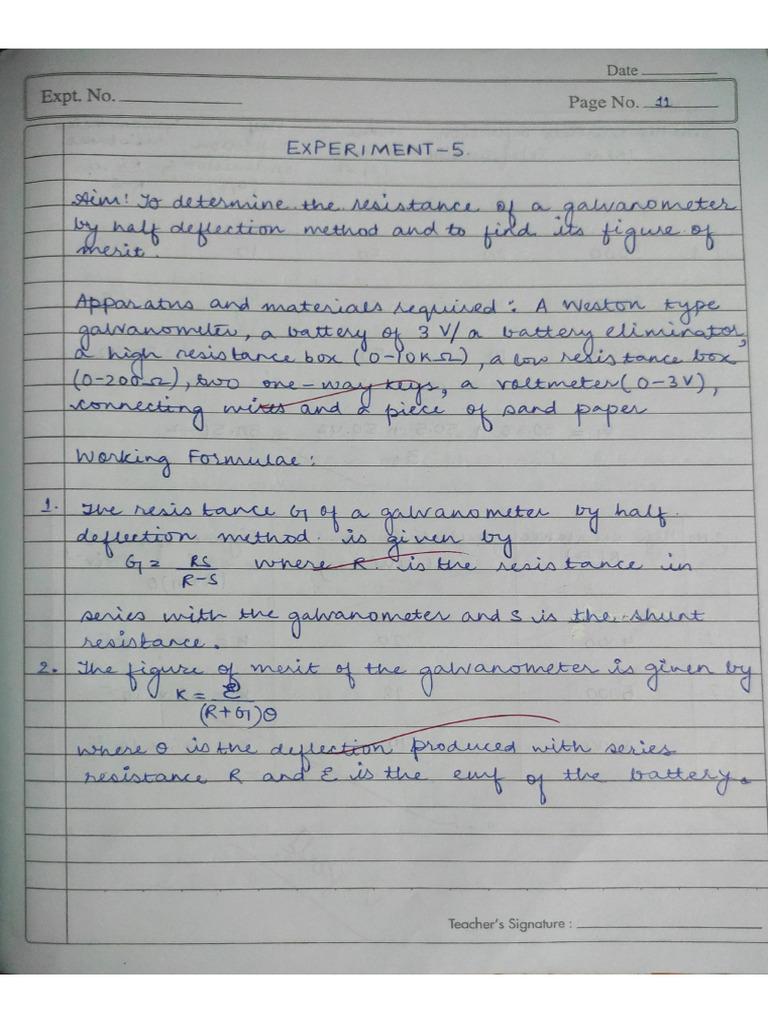 Date
Expt. No.
Page No. 11
EXPERIMENT-5.
Aim: To determine the resistance of a galvanometer
by half deflection method and to find its figure of
merit.
Apparatus and materials required: A Weston type
galvanometer, a battery of 3 V/a battery eliminator,
a high resistance box (0-10KΩ), a low resistance box
(0-200Ω), two one-way keys, a voltmeter (0-3V),
connecting wires and a piece of sand paper
Working Formulae:
1. The resistance G of a galvanometer by half
deflection method is given by
G = RS/R-S where R is the resistance in
series with the galvanometer and S is the shunt
resistance.
2. The figure of merit of the galvanometer is given by
K = E/(R+G)θ
where θ is the deflection produced with series
resistance R and E is the emf of the battery.
Teacher's Signature :